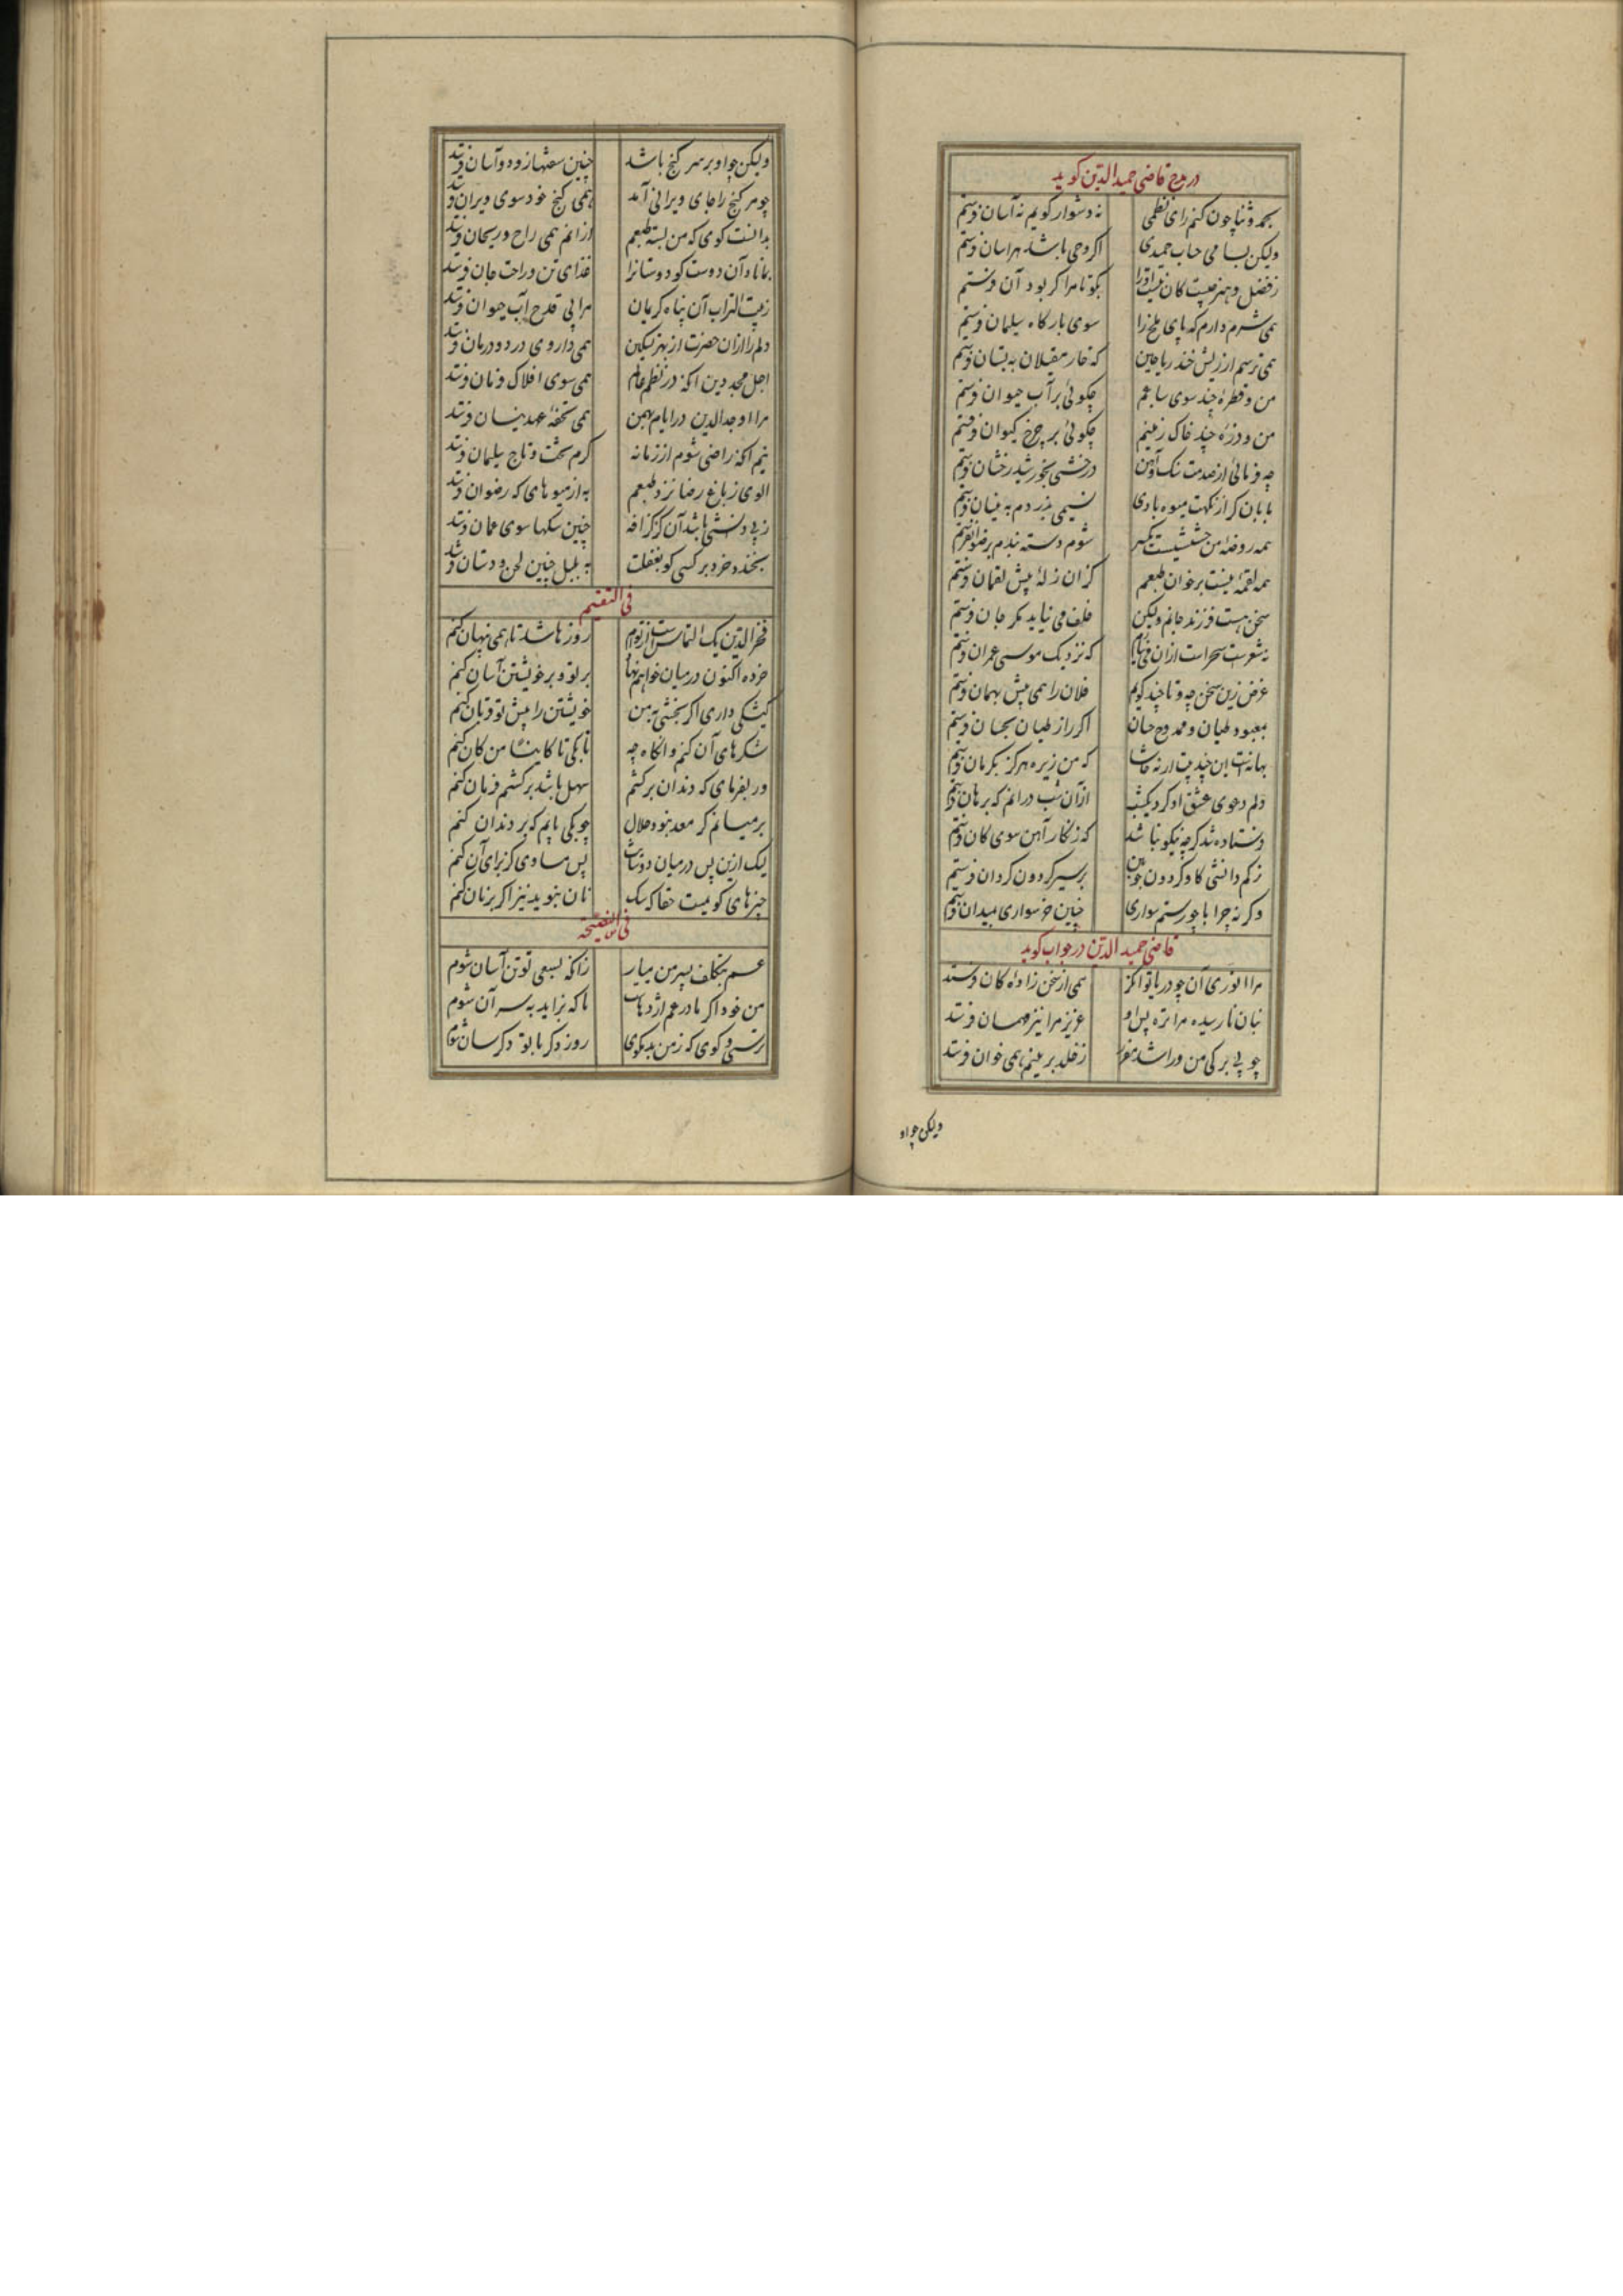 در مدح قاضی حمیدالدین کوید
بحمد و ثنا چون کنم رای نظمی نه دشوار کویم نه آسان فرستم
ولیکن بسامی جناب حمیدی اکر وحی باشد هراسان فرستم
ز فضل و هنر چیست کان نیست او را بکو تا مرا کر بود آن فرستم
همی شرم دارم که پای ملخ را سوی بارکاه سلیمان فرستم
همی ترسم از ریش خند ریاحین که خار مغیلان به بستان فرستم
من و قطره چند سوی سابقم چکوئی بر آب حیوان فرستم
من و ذره چند خاک زمینم چکوئی بر چرخ کیوان فرستم
چه فرمائی از صدمت سنک و آهن درخشی بخورشید رخشان فرستم
بابان کز نکهت میوه بادی نسیمی بدزدم به نیسان فرستم
همه روضه من حشیشیست یکسر شوم دسته بندم برضوان فرستم
همه لقمه نیست بر خوان طبعم کزان زله پیش لقمان فرستم
سخن هست فرزند جانم ولیکن خلف می نیاید مکر جان فرستم
نه شعرست سحر است ازان می نیارم که نزدیک موسی عمران فرستم
غرض زین سخن چه و تا چند کویم فلان را همی پیش بهمان فرستم
بمعبود طیان و ممدوح حسان اکر راز طیان بحسان فرستم
بهانه است این چند بیت ار نه حاشا که من زیره هرکز بکرمان فرستم
دلم دعوی عشق او کرد یکشب از آن شب درانم که برهان فرستم
فرستاده شد کرچه نیکو نباشد که زنکار آهن سوی کان فرستم
ز کم دانشی کاو کردون چوبین بر سیر کردون کردان فرستم
وکر نه چرا با چو رستم سواری چنین خر سواری بمیدان فرستم
قاضی حمیدالدین در جواب کوید
مرا انوری آن چو دریا توانکر همی از سخن زاده کان فرستد
بنان نارسیده مرا تره پس او عزیز مرا نیز مهمان فرستد
چو بی برکی من ورا شد مقرر ز خلد برینم همی خوان فرستد
ولیکن چو او
ولیکن چو او بر سر کنج باشد چنین سعتها زود و آسان فرستد
چو مر کنج را جای ویرانی آمد همی کنج خود سوی ویران فرستد
بدانست کوی که من بسته طبعم از انم همی راح و ریحان فرستد
بماناد آن دوست کو دوستانرا غذای تن و راحت جان فرستد
ز بیت التراب آن پناه کریمان مرا بی قدح آب حیوان فرستد
دلم را ازان حضرت از بهر تسکین همی داروی درد و درمان فرستد
اجل مجد دین انکه در نظم عالم همی سوی افلاک فرمان فرستد
مرا اوحدالدین در ایام بهمن همی تحفه عهد نیسان فرستد
نیم آنکه راضی شوم از زمانه کرم تخت و تاج سلیمان فرستد
الوی ز باغ رضا نزد طبعم به از میوهای که رضوان فرستد
ز بی دانشی باشد آن کز کزافه چنین سنکها سوی عمان فرستد
بخندد خرد بر کسی کو بغفلت به بلبل چنین لحن و دستان فرستد
فخرالدین یک التماس است از توام روزها شد تا همی پنهان کنم
خرده اکنون در میان خواهم نهاد بر تو و بر خویشتن آسان کنم
کیشکی داری اکر بخشی به من خویشتن را پیش تو قربان کنم
شکرهای آن کنم وانکاه چه
ور بفرمای که دندان برکشم سهل باشد برکشم فرمان کنم
بر میانم کر معد نبود حلال چوبکی یابم که بر دندان کنم
لیک ازین پس در میان دوستان پس مساوی کز برای آن کنم
چیزهای کو نیست حقا که سک نان نبوید نیز اکر بر نان کنم
فی النصیحة
عسم بتکلف بسر من میار زانکه بسعی تو تن آسان شوم
من خود اکر مادر عم اژدهاست تا که بزاید به سر آن شوم
ترسی و کوی که ز من بد مکوی روز دکر با تو دکر سان شوم